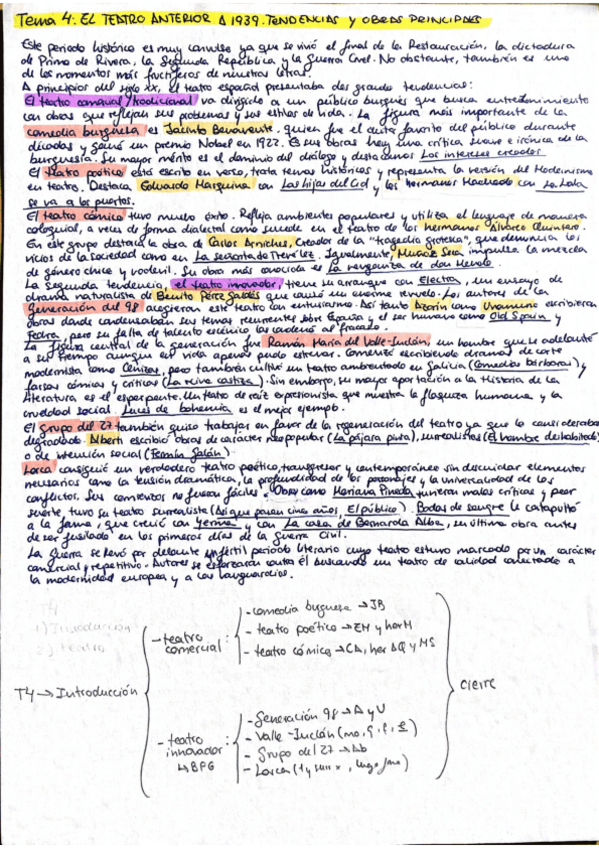 Tema 4: EL TEATRO ANTERIOR A 1939. TENDENCIAS Y OBRAS PRINCIPALES
Este periodo histórico es muy convulso ya que se vivió el final de la Restauración, la dictadura
de Primo de Rivera, la Segunda República y la Guerra Civil. No obstante, también es uno
de los momentos más fructíferos de nuestras letras.
A principios del siglo XX, el teatro español presentaba dos grandes tendencias:
El teatro comercial/tradicional va dirigido a un público burgués que busca entretenimiento
con obras que reflejan sus problemas y sus estilos de vida. La figura más importante de la
comedia burguesa es Jacinto Benavente, quien fue el autor favorito del público durante
décadas y ganó un premio Nobel en 1922. En sus obras hay una crítica suave e irónica de la
burguesía. Su mayor mérito es el dominio del diálogo y destacamos Los intereses creados.
El teatro poético está escrito en verso, trata temas históricos y representa la versión del Modernismo
en teatro. Destaca Eduardo Marquina con Las hijas del Cid y los hermanos Machado con La Lola
se va a los puertos.
El teatro cómico tuvo mucho éxito. Refleja ambientes populares y utiliza el lenguaje de manera
coloquial, a veces de forma dialectal como sucede en el teatro de los hermanos Álvarez Quintero.
En este grupo destaca la obra de Carlos Arniches, creador de la "tragedia grotesca", que denuncia los
vicios de la sociedad como en La señorita de Trevélez. Igualmente, Muñoz Seca impulsa la mezcla
de género chico y vodevil. Su obra más conocida es La venganza de don Mendo.
La segunda tendencia, el teatro innovador, tiene su arranque con Electra, un ensayo de
drama naturalista de Benito Pérez Galdós que causó un enorme revuelo. Los autores de la
Generación del 98 acogieron este teatro con entusiasmo. Así tanto Azorín como Unamuno escribieron
obras donde condensaban sus temas recurrentes sobre España y el ser humano como Old Spain y
Fedra, pero su falta de talento escénico los condenó al fracaso.
La figura central de la generación fue Ramón María del Valle-Inclán, un hombre que se adelantó
a su tiempo aunque en vida apenas pudo estrenar. Comenzó escribiendo dramas de corte
modernista como Cenizas, pero también cultivó un teatro ambientado en Galicia (Comedias bárbaras) y
farsas cómicas y críticas (La reina castiza). Sin embargo, su mayor aportación a la Historia de la
literatura es el esperpento. Un teatro de raíz expresionista que muestra la flaqueza humana y la
crueldad social. Luces de bohemia es el mejor ejemplo.
El grupo del 27 también quiso trabajar en favor de la regeneración del teatro ya que lo consideraba
degradado. Alberti escribió obras de carácter neopopular (La pájara pinta), surrealistas (El hombre deshabitado)
o de intención social (Fermín Galán).
Lorca consiguió un verdadero teatro poético, transgresor y contemporáneo sin descuidar elementos
necesarios como la tensión dramática, la profundidad de los personajes y la universalidad de los
conflictos. Sus comienzos no fueron fáciles. Obras como Mariana Pineda, tuvieron malas críticas y peor
suerte, tuvo su teatro surrealista (Así que pasen cinco años, El público). Bodas de sangre le catapultó
a la fama, que creció con Yerma y con La casa de Bernarda Alba, su última obra antes
de ser fusilado en los primeros días de la Guerra Civil.
La Guerra se llevó por delante un fértil periodo literario cuyo teatro estuvo marcado por un carácter
comercial y repetitivo. Autores se esforzaron contra él buscando un teatro de calidad conectado a
la modernidad europea y a las vanguardias.
T4
1) Introducción
2) teatro
T4 → Introducción
- teatro comercial:
- comedia burguesa → JB
- teatro poético → EM y herM
- teatro cómico → CA, her ÁQ y MS
- teatro innovador:
↳ BPG
- Generación 98 → A y U
- Valle-Inclán
- Grupo del 27 → Ab
- Lorca
cierre